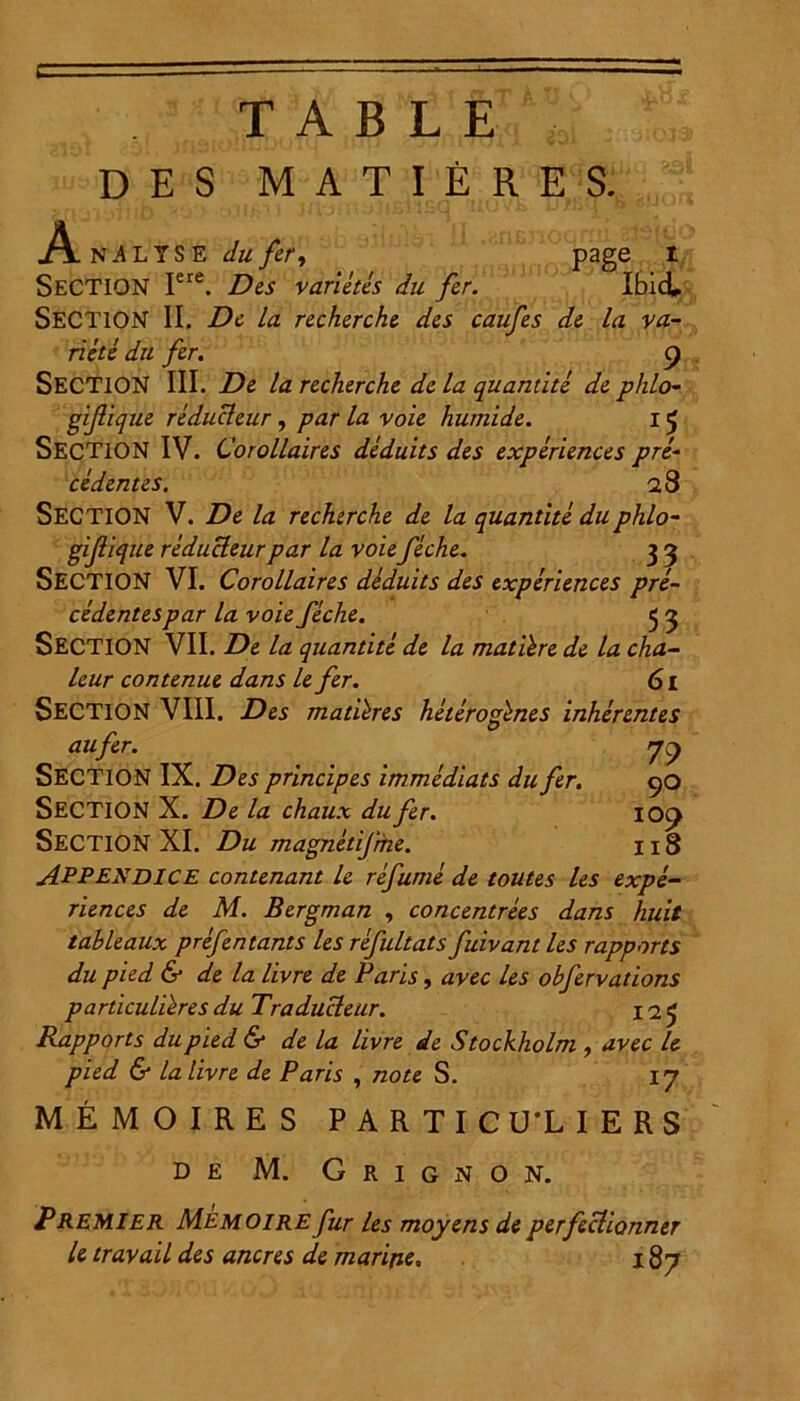 TABLE
DES MATIÈRES.
ANALYSE du fer, page 1
SECTION Iere. Des variétés du fer. Ibid.
SECTION II. De la recherche des cauſes de la va-
riété du fer. 9
SECTION III. De la recherche de la quantité de phlo-
giſtique réducteur, par la voie humide. 15
SECTION IV. Corollaires déduits des expériences pré-
cédentes. 28
SECTION V. De la recherche de la quantité du phlo-
giſtique réducteur par la voie ſéche. 33
SECTION VI. Corollaires déduits des expériences pré-
cédentes par la voie ſéche. 53
SECTION VII. De la quantité de la matière de la cha-
leur contenue dans le fer. 61
SECTION VIII. Des matières hétérogènes inhérentes
au fer. 79
SECTION IX. Des principes immédiats du fer. 90
SECTION X. De la chaux du fer. 109
SECTION XI. Du magnétiſme. 118
APPENDICE contenant le réſumé de toutes les expé-
riences de M. Bergman, concentrées dans huit
tableaux préſentants les réſultats ſuivant les rapports
du pied & de la livre de Paris, avec les obſervations
particulières du Traducteur. 125
Rapports du pied & de la livre de Stockholm, avec le
pied & la livre de Paris, note S. 17
MÉMOIRES PARTICU'LIERS
DE M. GRIGNON.
PREMIER MÉMOIRE ſur les moyens de perfectionner
le travail des ancres de marine. 187